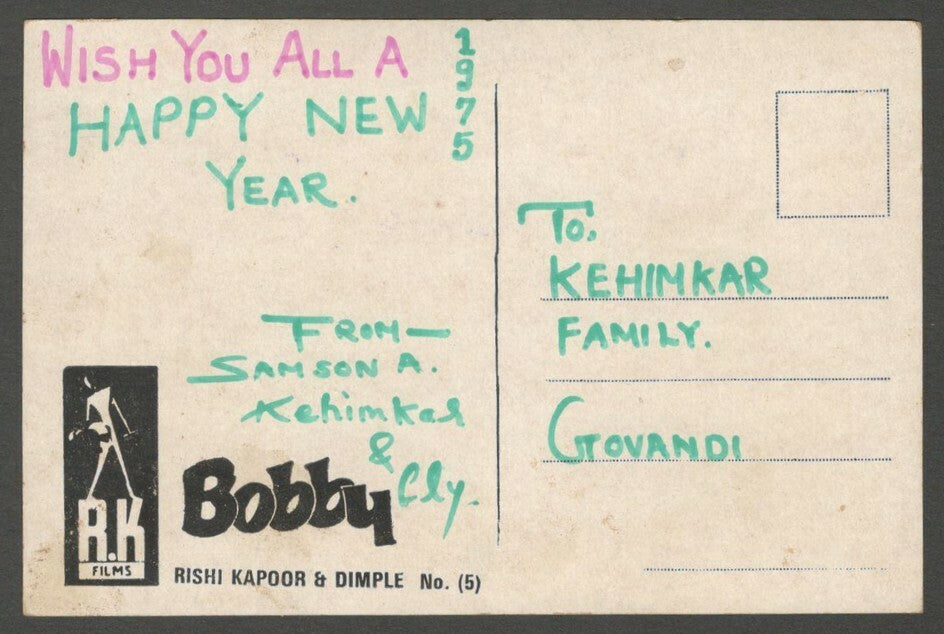 WISH YOU ALL A
HAPPY NEW
YEAR.
1975
FROM—
SAMSON A.
Kehimkar
&
Cly.
R.K
FILMS
Bobby
RISHI KAPOOR & DIMPLE No. (5)
To,
KEHIMKAR
FAMILY.
GOVANDI